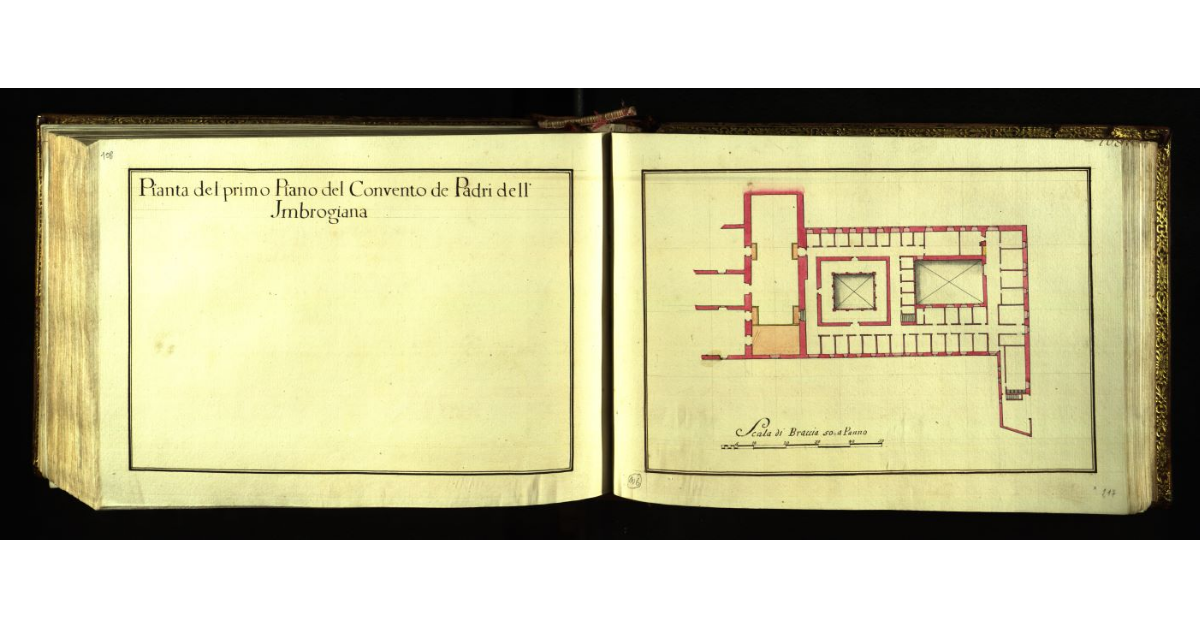 108
Pianta del primo Piano del Convento de Padri dell'
Jmbrogiana
Scala di Braccia 50. a Panno
217